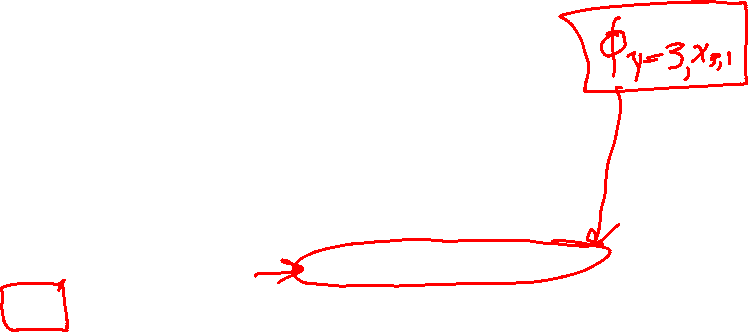 ϕ y=3, x₃,₁